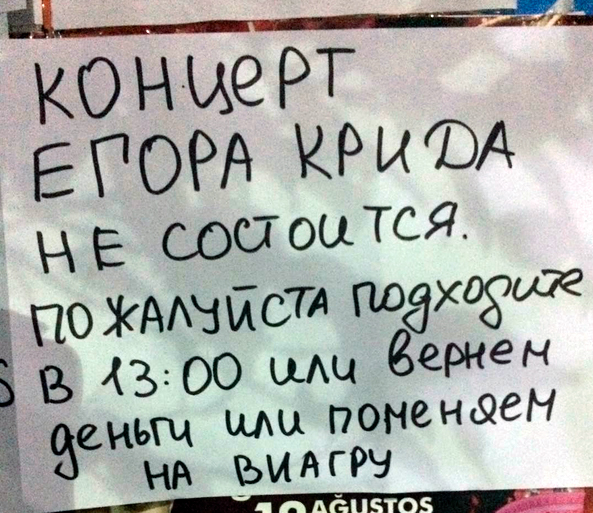 КОНЦеРТ
ЕГОРА КРИДА
НЕ СОСТОИТСЯ.
ПОЖАЛУЙСТА подходите
В 13:00 или вернем
деньги или поменяем
НА ВИАГРУ
AĞUSTOS